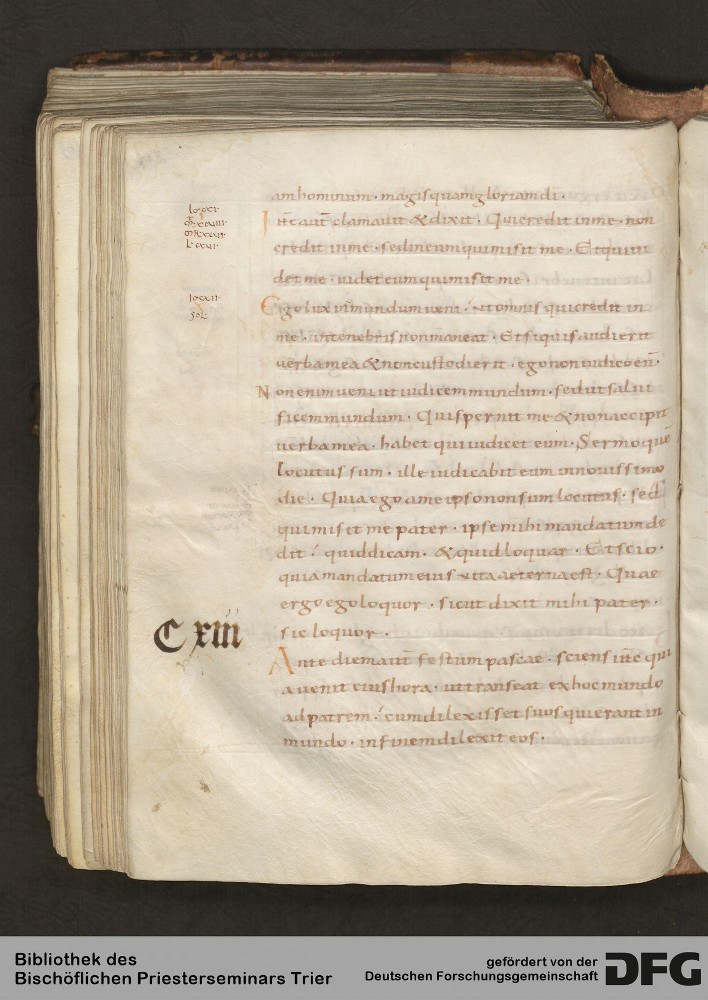 am hominum · magis quam gloriam di ·
Iħc aut clamauit & dixit · Qui credit in me · non
credit in me · sed in eum qui misit me · Et qui ui
det me · uidet eum qui misit me ·
Ego lux in mundum ueni · ut omnis qui credit in
me · in tenebris non maneat · Et si quis audierit
uerba mea & non custodierit · ego non iudico eū ·
Non enim ueni ut iudicem mundum · sed ut salui
ficem mundum · Qui spernit me & non accipit
uerba mea · habet qui iudicet eum · Sermo quē
locutus sum · ille iudicabit eum in nouissimo
die · Quia ego a me ipso non sum locutus · sed
qui misit me pater · ipse mihi mandatum de
dit · quid dicam · & quid loquar · Et scio ·
quia mandatum eius uita aeterna est · Quae
ergo ego loquor · sicut dixit mihi pater ·
sic loquor ·
Cxiii
Ante diem aut festum pascae · sciens iħc qui
a uenit eius hora · ut transeat ex hoc mundo
ad patrem · cum dilexisset suos qui erant in
mundo · in finem dilexit eos ·
Bibliothek des
Bischöflichen Priesterseminars Trier
gefördert von der
Deutschen Forschungsgemeinschaft
DFG